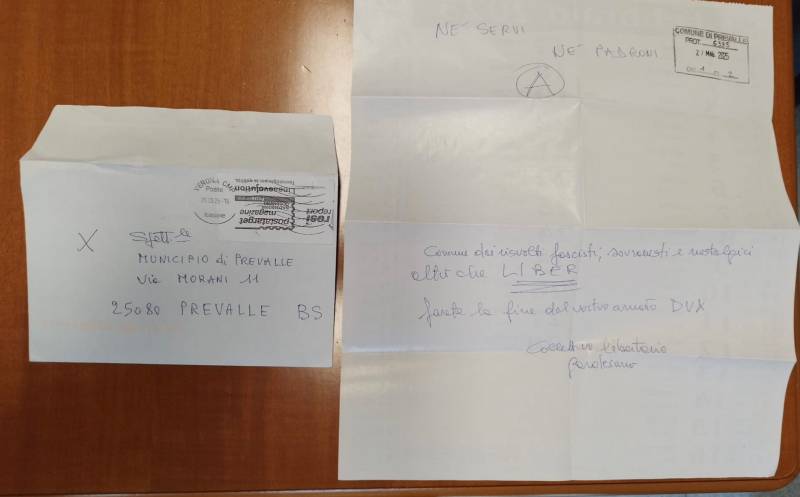 NE' SERVI
NE' PADRONI
A
COMUNE DI PREVALLE
PROT. 6385
27 MAR. 2025
Comune dai risvolti fascisti, sovranisti e nostalgici
altro che LIBER
farete la fine del vostro amato DVX
Collettivo Libertario
gardesano
VERONA CMP
Poste
Italiane
postatarget
magazine
rosi
report
Speft.le
MUNICIPIO di PREVALLE
Via MORANI 11
25080 PREVALLE BS
X